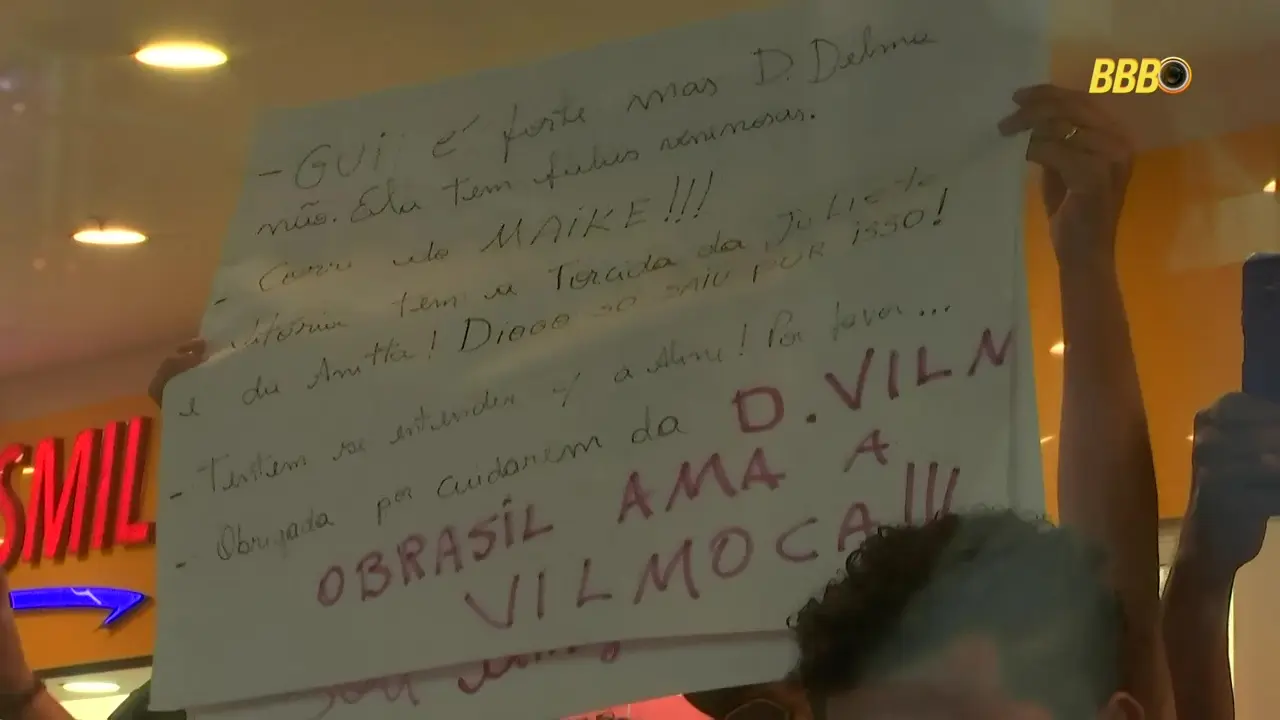 BBB
- GUi é forte mas D. Delma
não. Ela tem falas venenosas.
- Corre do MAiKE!!!
Vitória tem a Torcida da Juliete
e da Anitta! Diogo só saiu por isso!
- Tentem se entender c/ a Aline! Por favor...
- Obrigada por cuidarem da D. VILM
O BRASiL AMA A
VILMOCA!!!
SMIL